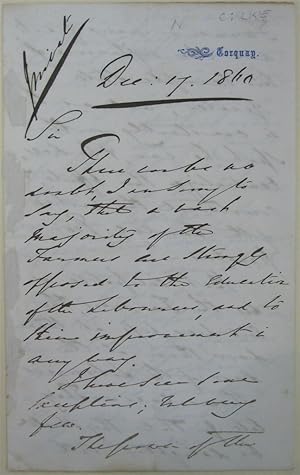 Torquay.
Dec: 17. 1860
Sir
There can be no
doubt, I am sorry to
say, that a vast
majority of the
Farmers are strongly
opposed to the Education
of the Labourers, and to
their improvement in
any way.
I have seen some
exceptions; but very
few.
The power of the